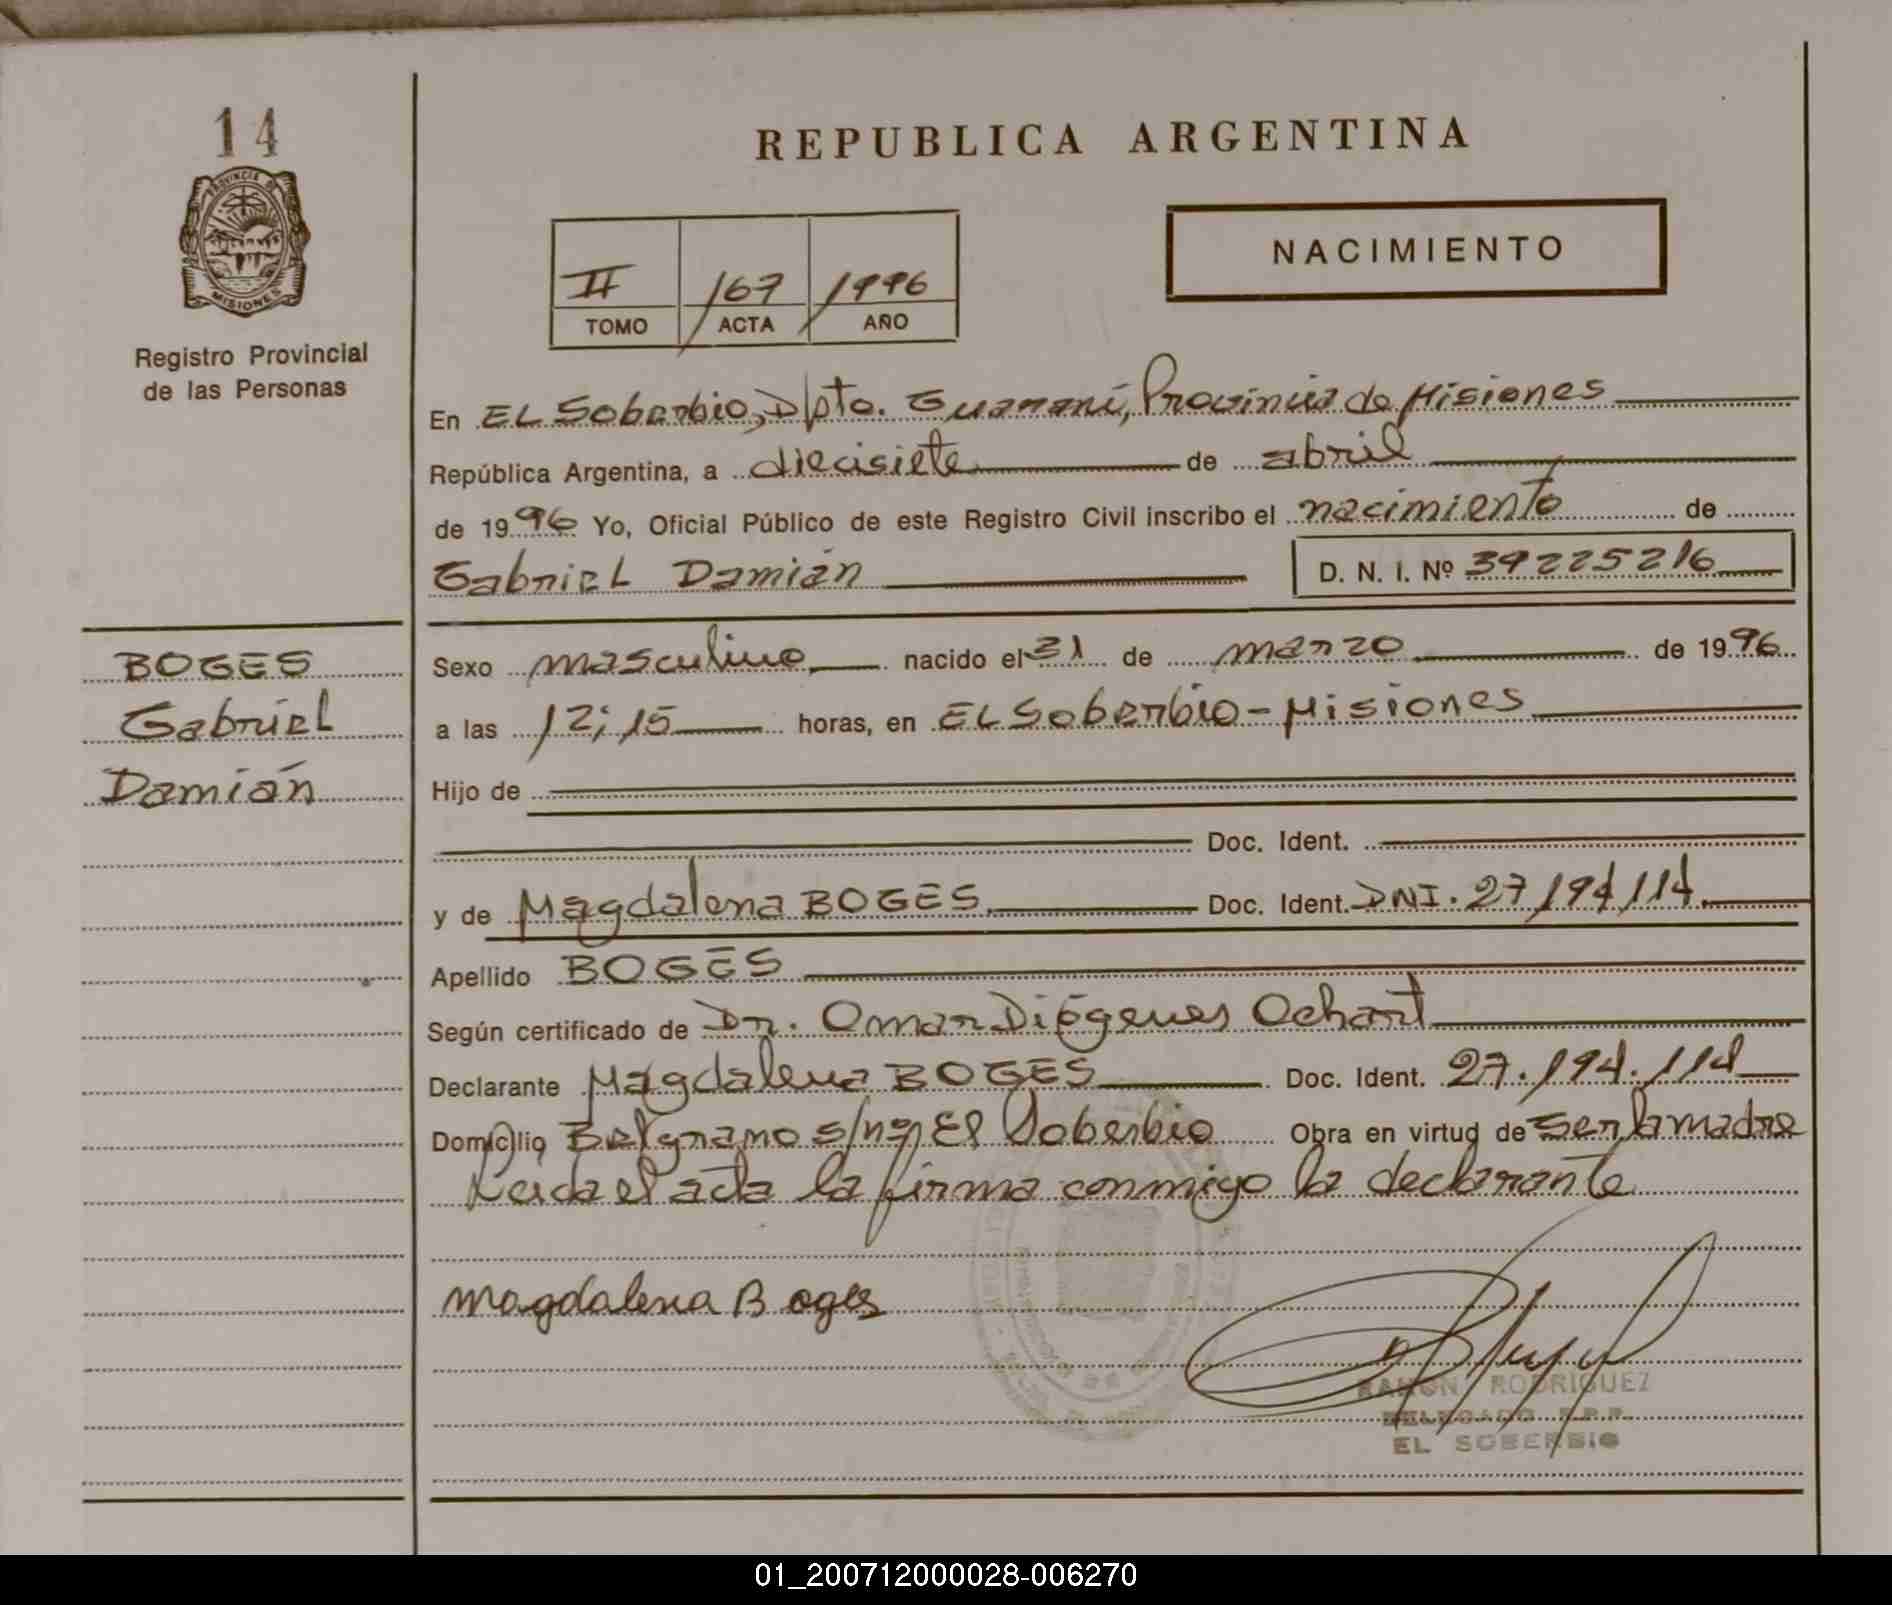 14
PROVINCIA DE
MISIONES
Registro Provincial
de las Personas
REPUBLICA ARGENTINA
II 167 1996
TOMO ACTA AÑO
NACIMIENTO
En EL Soberbio, Dpto. Guaraní, Provincia de Misiones
República Argentina, a diecisiete de abril
de 1996 Yo, Oficial Público de este Registro Civil inscribo el nacimiento de
Gabriel Damián D. N. I. Nº 39225216
BOGES
Gabriel
Damián
Sexo masculino nacido el 31 de marzo de 1996
a las 12;15 horas, en EL Soberbio - Misiones
Hijo de
Doc. Ident.
y de Magdalena BOGES Doc. Ident. DNI. 27194114
Apellido BOGES
Según certificado de Dr. Omar Diógenes Ochart
Declarante Magdalena BOGES Doc. Ident. 27.194.114
Domicilio Belgrano s/nº, El Soberbio Obra en virtud de ser la madre
Leida el acta la firma conmigo la declarante
Magdalena Boges
RAMON RODRIGUEZ
DELEGADO R.P.P.
EL SOBERBIO
01_200712000028-006270